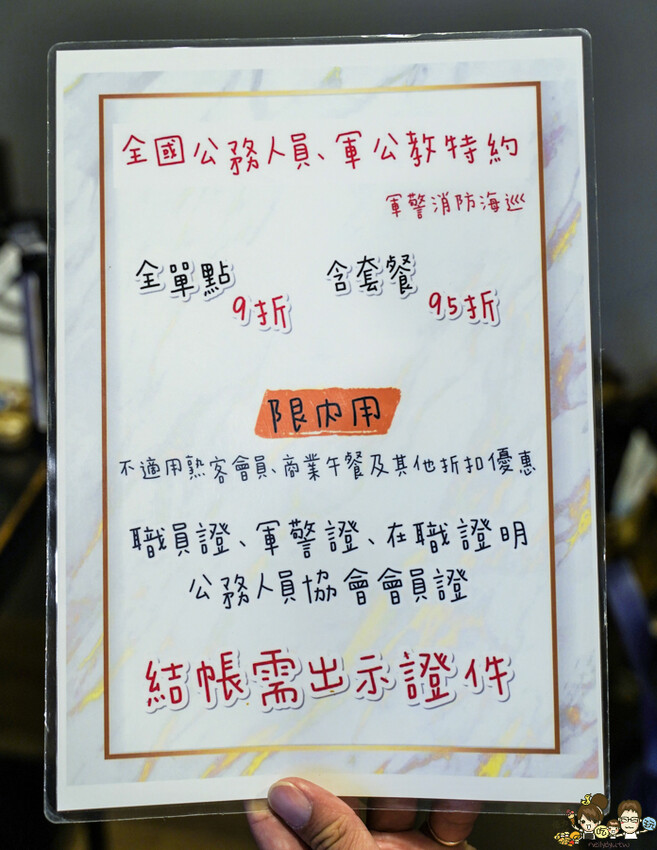 全國公務人員、軍公教特約
軍警消防海巡
全單點
9折
含套餐
95折
限內用
不適用熟客會員、商業午餐及其他折扣優惠
職員證、軍警證、在職證明
公務人員協會會員證
結帳需出示證件